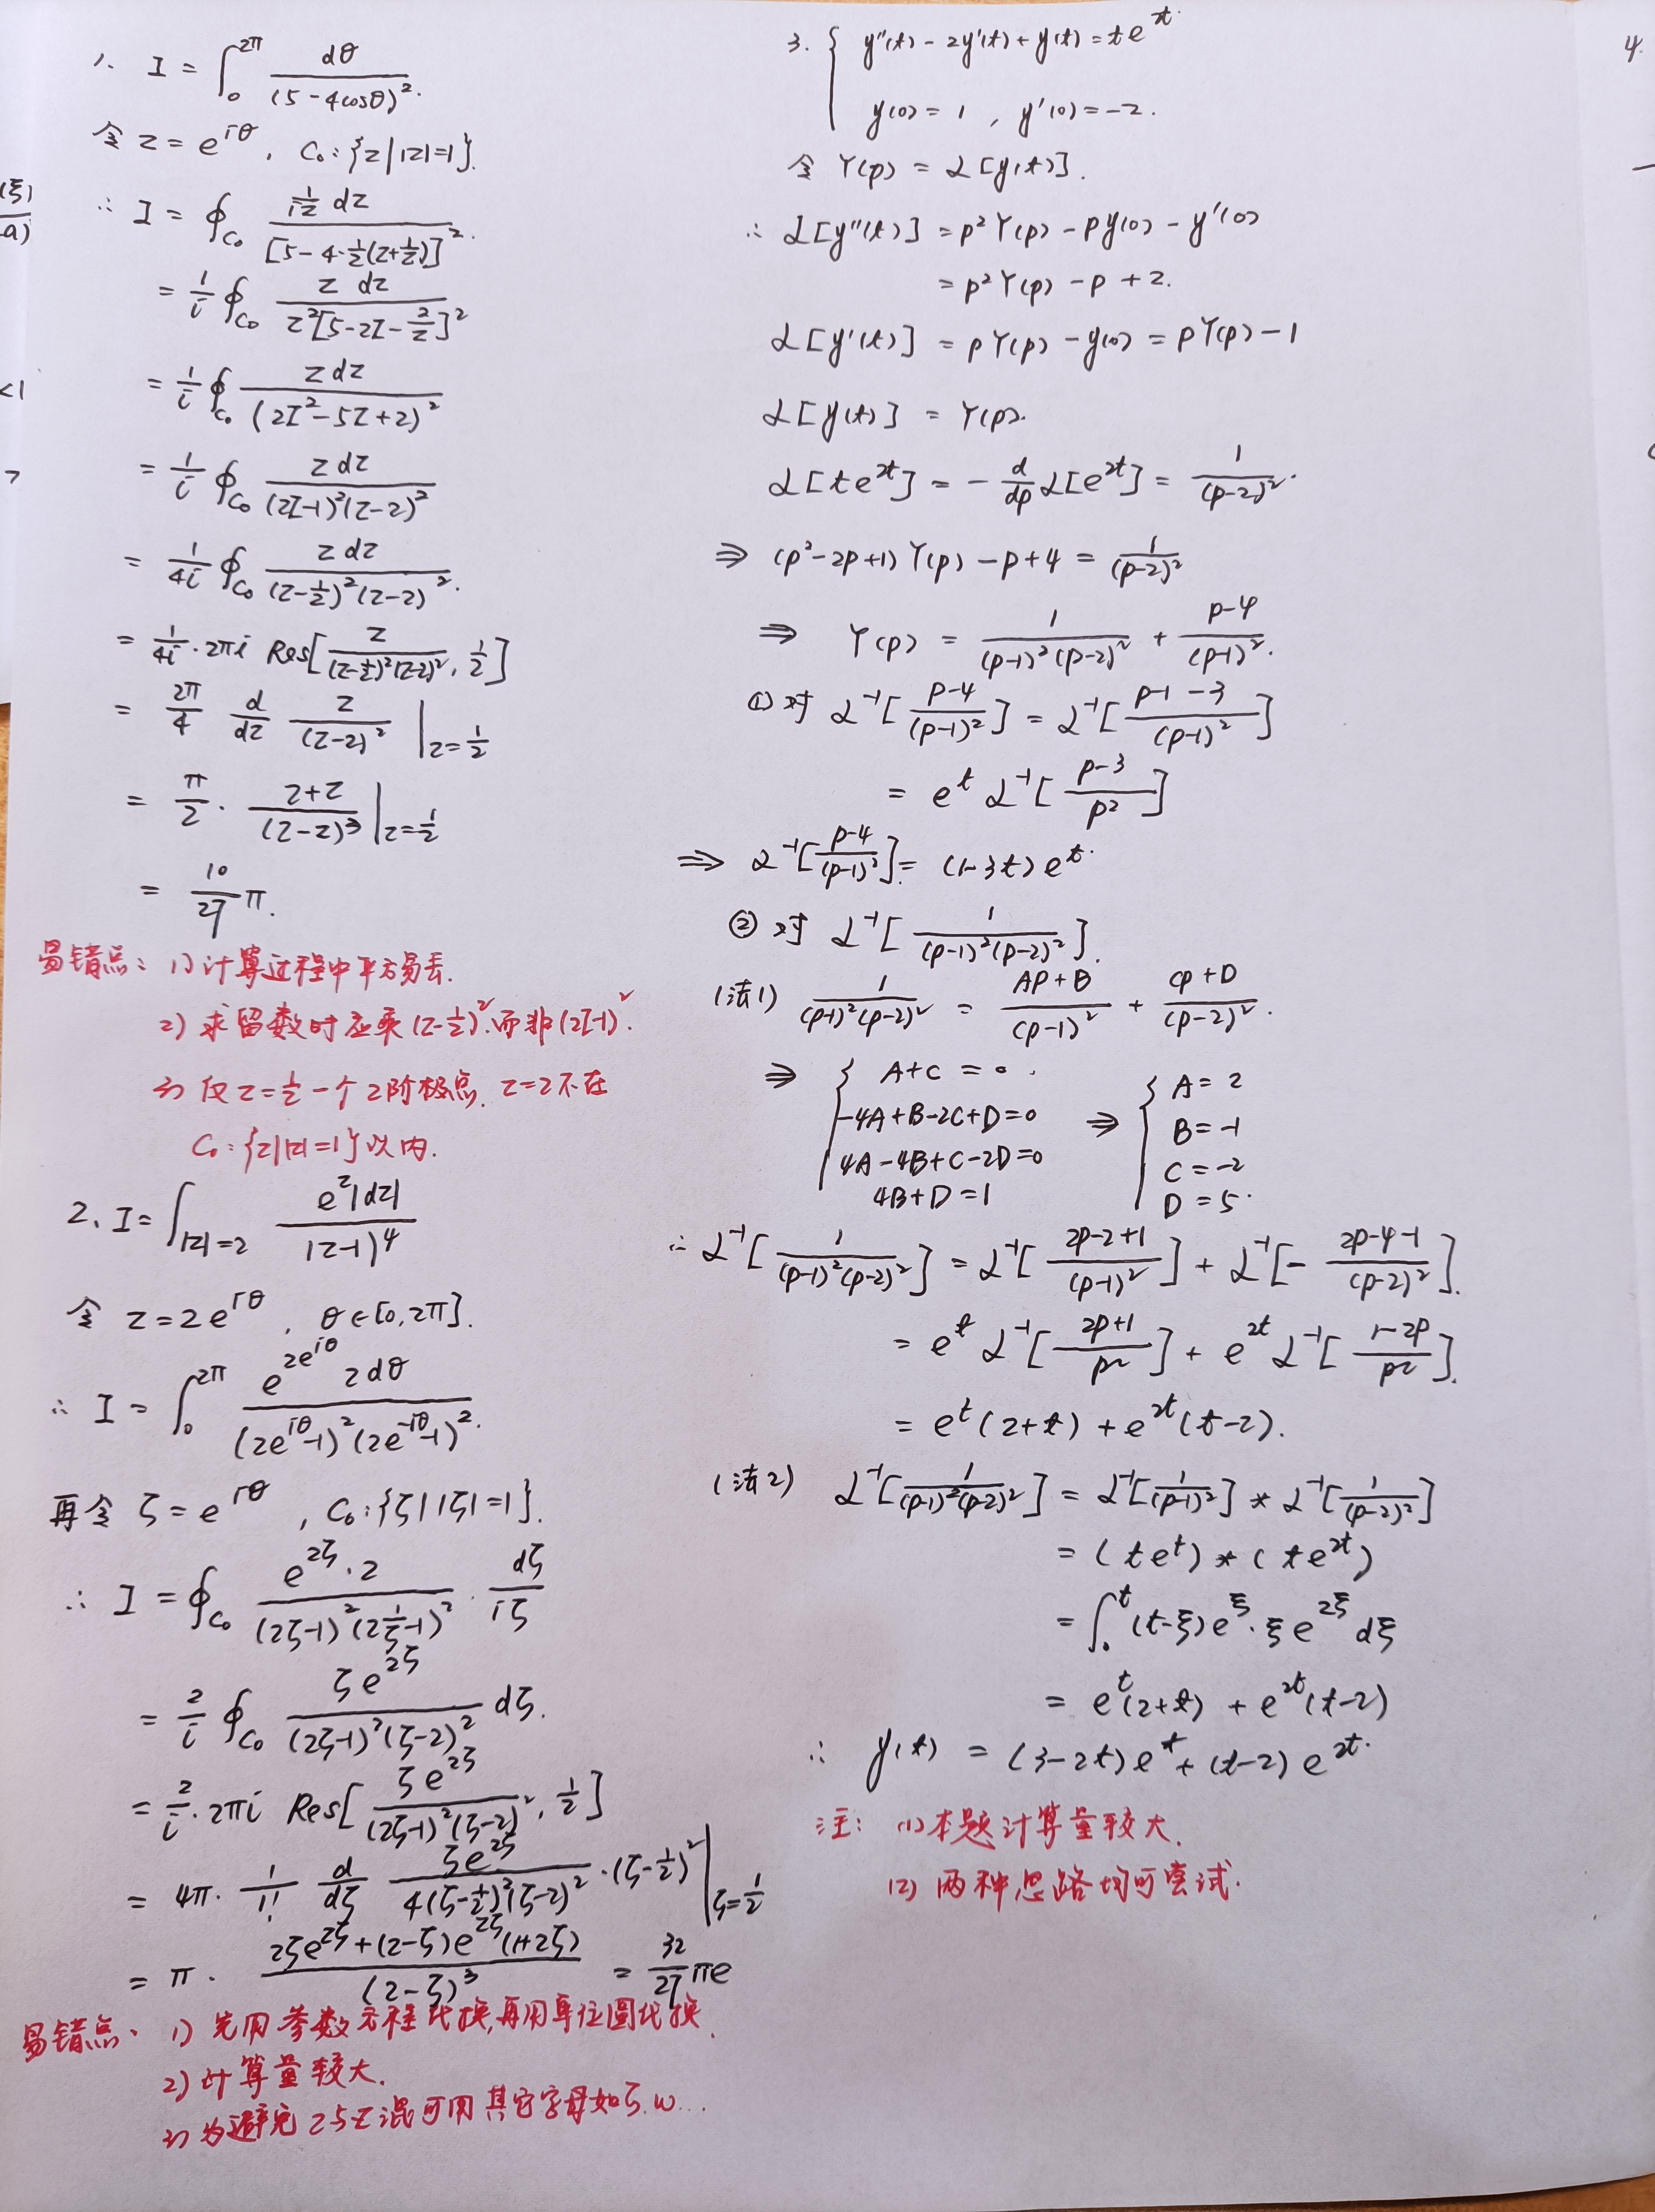 1. I = ∫₀^{2π} dθ/(5-4cosθ)².
令 z = e^{iθ}, C₀:{z||z|=1}.
∴ I = ∮_{C₀} (1/(iz) dz)/[5-4·½(z+1/z)]².
= 1/i ∮_{C₀} z dz/(z²[5-2z-2/z]²)
= 1/i ∮_{C₀} z dz/(2z²-5z+2)²
= 1/i ∮_{C₀} z dz/((2z-1)²(z-2)²)
= 1/(4i) ∮_{C₀} z dz/((z-½)²(z-2)²).
= 1/(4i)·2πi Res[z/((z-½)²(z-2)²), ½]
= 2π/4 d/dz z/(z-2)² |_{z=½}
= π/2 · (2+z)/(2-z)³ |_{z=½}
= 10/27 π.
易错点: 1) 计算过程中平方易丢.
2) 求留数时应乘(z-½)².而非(2z-1)².
3) 仅z=½一个2阶极点. z=2不在
C₀:{z||z|=1}以内.
2、I = ∫_{|z|=2} e^z|dz|/|z-1|⁴
令 z=2e^{iθ}, θ∈[0,2π].
∴ I = ∫₀^{2π} e^{2e^{iθ}} 2dθ/((2e^{iθ}-1)²(2e^{-iθ}-1)²).
再令 ζ=e^{iθ}, C₀:{ζ||ζ|=1}.
∴ I = ∮_{C₀} e^{2ζ}·2/((2ζ-1)²(2·1/ζ-1)²) · dζ/(iζ)
= 2/i ∮_{C₀} ζe^{2ζ}/((2ζ-1)²(ζ-2)²) dζ.
= 2/i·2πi Res[ζe^{2ζ}/((2ζ-1)²(ζ-2)²), ½]
= 4π· 1/1! d/dζ ζe^{2ζ}/(4(ζ-½)²(ζ-2)²)·(ζ-½)² |_{ζ=½}
= π· (2ζe^{2ζ}+(2-ζ)e^{2ζ}(1+2ζ))/(2-ζ)³ = 32/27 πe
易错点、1) 先用参数方程代换,再用单位圆代换.
2) 计算量较大.
3) 为避免z与z混可用其它字母如ζ.w...
3. { y''(t)-2y'(t)+y(t)=te^{2t}.
y(0)=1, y'(0)=-2.
令 Y(p) = ℒ[y(t)].
∴ ℒ[y''(t)] = p²Y(p)-py(0)-y'(0)
= p²Y(p)-p+2.
ℒ[y'(t)] = pY(p)-y(0) = pY(p)-1
ℒ[y(t)] = Y(p).
ℒ[te^{2t}] = -d/dp ℒ[e^{2t}] = 1/(p-2)².
⇒ (p²-2p+1)Y(p)-p+4 = 1/(p-2)²
⇒ Y(p) = 1/((p-1)²(p-2)²) + (p-4)/(p-1)².
① 对 ℒ⁻¹[(p-4)/(p-1)²] = ℒ⁻¹[(p-1-3)/(p-1)²]
= e^t ℒ⁻¹[(p-3)/p²]
⇒ ℒ⁻¹[(p-4)/(p-1)²] = (1-3t)e^t.
② 对 ℒ⁻¹[1/((p-1)²(p-2)²)].
(法1) 1/((p-1)²(p-2)²) = (Ap+B)/(p-1)² + (Cp+D)/(p-2)².
⇒ { A+C=0. -4A+B-2C+D=0 4A-4B+C-2D=0 4B+D=1 ⇒ { A=2 B=-1 C=-2 D=5.
∴ ℒ⁻¹[1/((p-1)²(p-2)²)] = ℒ⁻¹[(2p-2+1)/(p-1)²] + ℒ⁻¹[-(2p-4-1)/(p-2)²].
= e^t ℒ⁻¹[(2p+1)/p²] + e^{2t} ℒ⁻¹[(1-2p)/p²].
= e^t(2+t)+e^{2t}(t-2).
(法2) ℒ⁻¹[1/((p-1)²(p-2)²)] = ℒ⁻¹[1/(p-1)²] * ℒ⁻¹[1/(p-2)²]
= (te^t)*(te^{2t})
= ∫₀^t (t-ξ)e^ξ·ξe^{2ξ}dξ
= e^t(2+t) + e^{2t}(t-2)
∴ y(t) = (3-2t)e^t+(t-2)e^{2t}.
注: (1) 本题计算量较大.
(2) 两种思路均可尝试.
4.